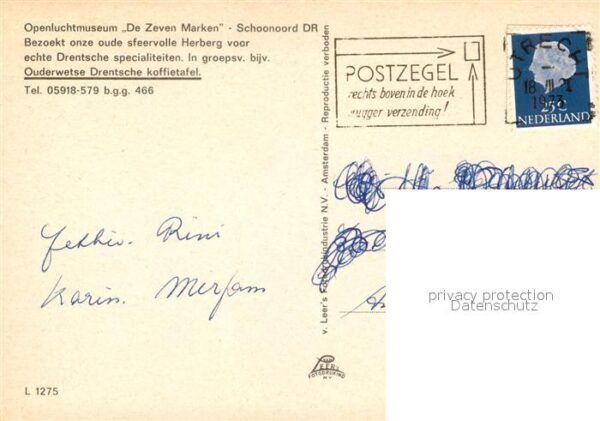 Openluchtmuseum „De Zeven Marken" - Schoonoord DR
Bezoekt onze oude sfeervolle Herberg voor
echte Drentsche specialiteiten. In groepsv. bijv.
Ouderwetse Drentsche koffietafel.
Tel. 05918-579 b.g.g. 466
Rini
Karin. Mirjam
L 1275
v. Leer's Fotodrukindustrie N.V. - Amsterdam - Reproductie verboden
POSTZEGEL
rechts boven in de hoek
vlugger verzending!
UTRECHT
1973
25c
NEDERLAND
LEERS
FOTODRUKIND
N.V.
privacy protection
Datenschutz